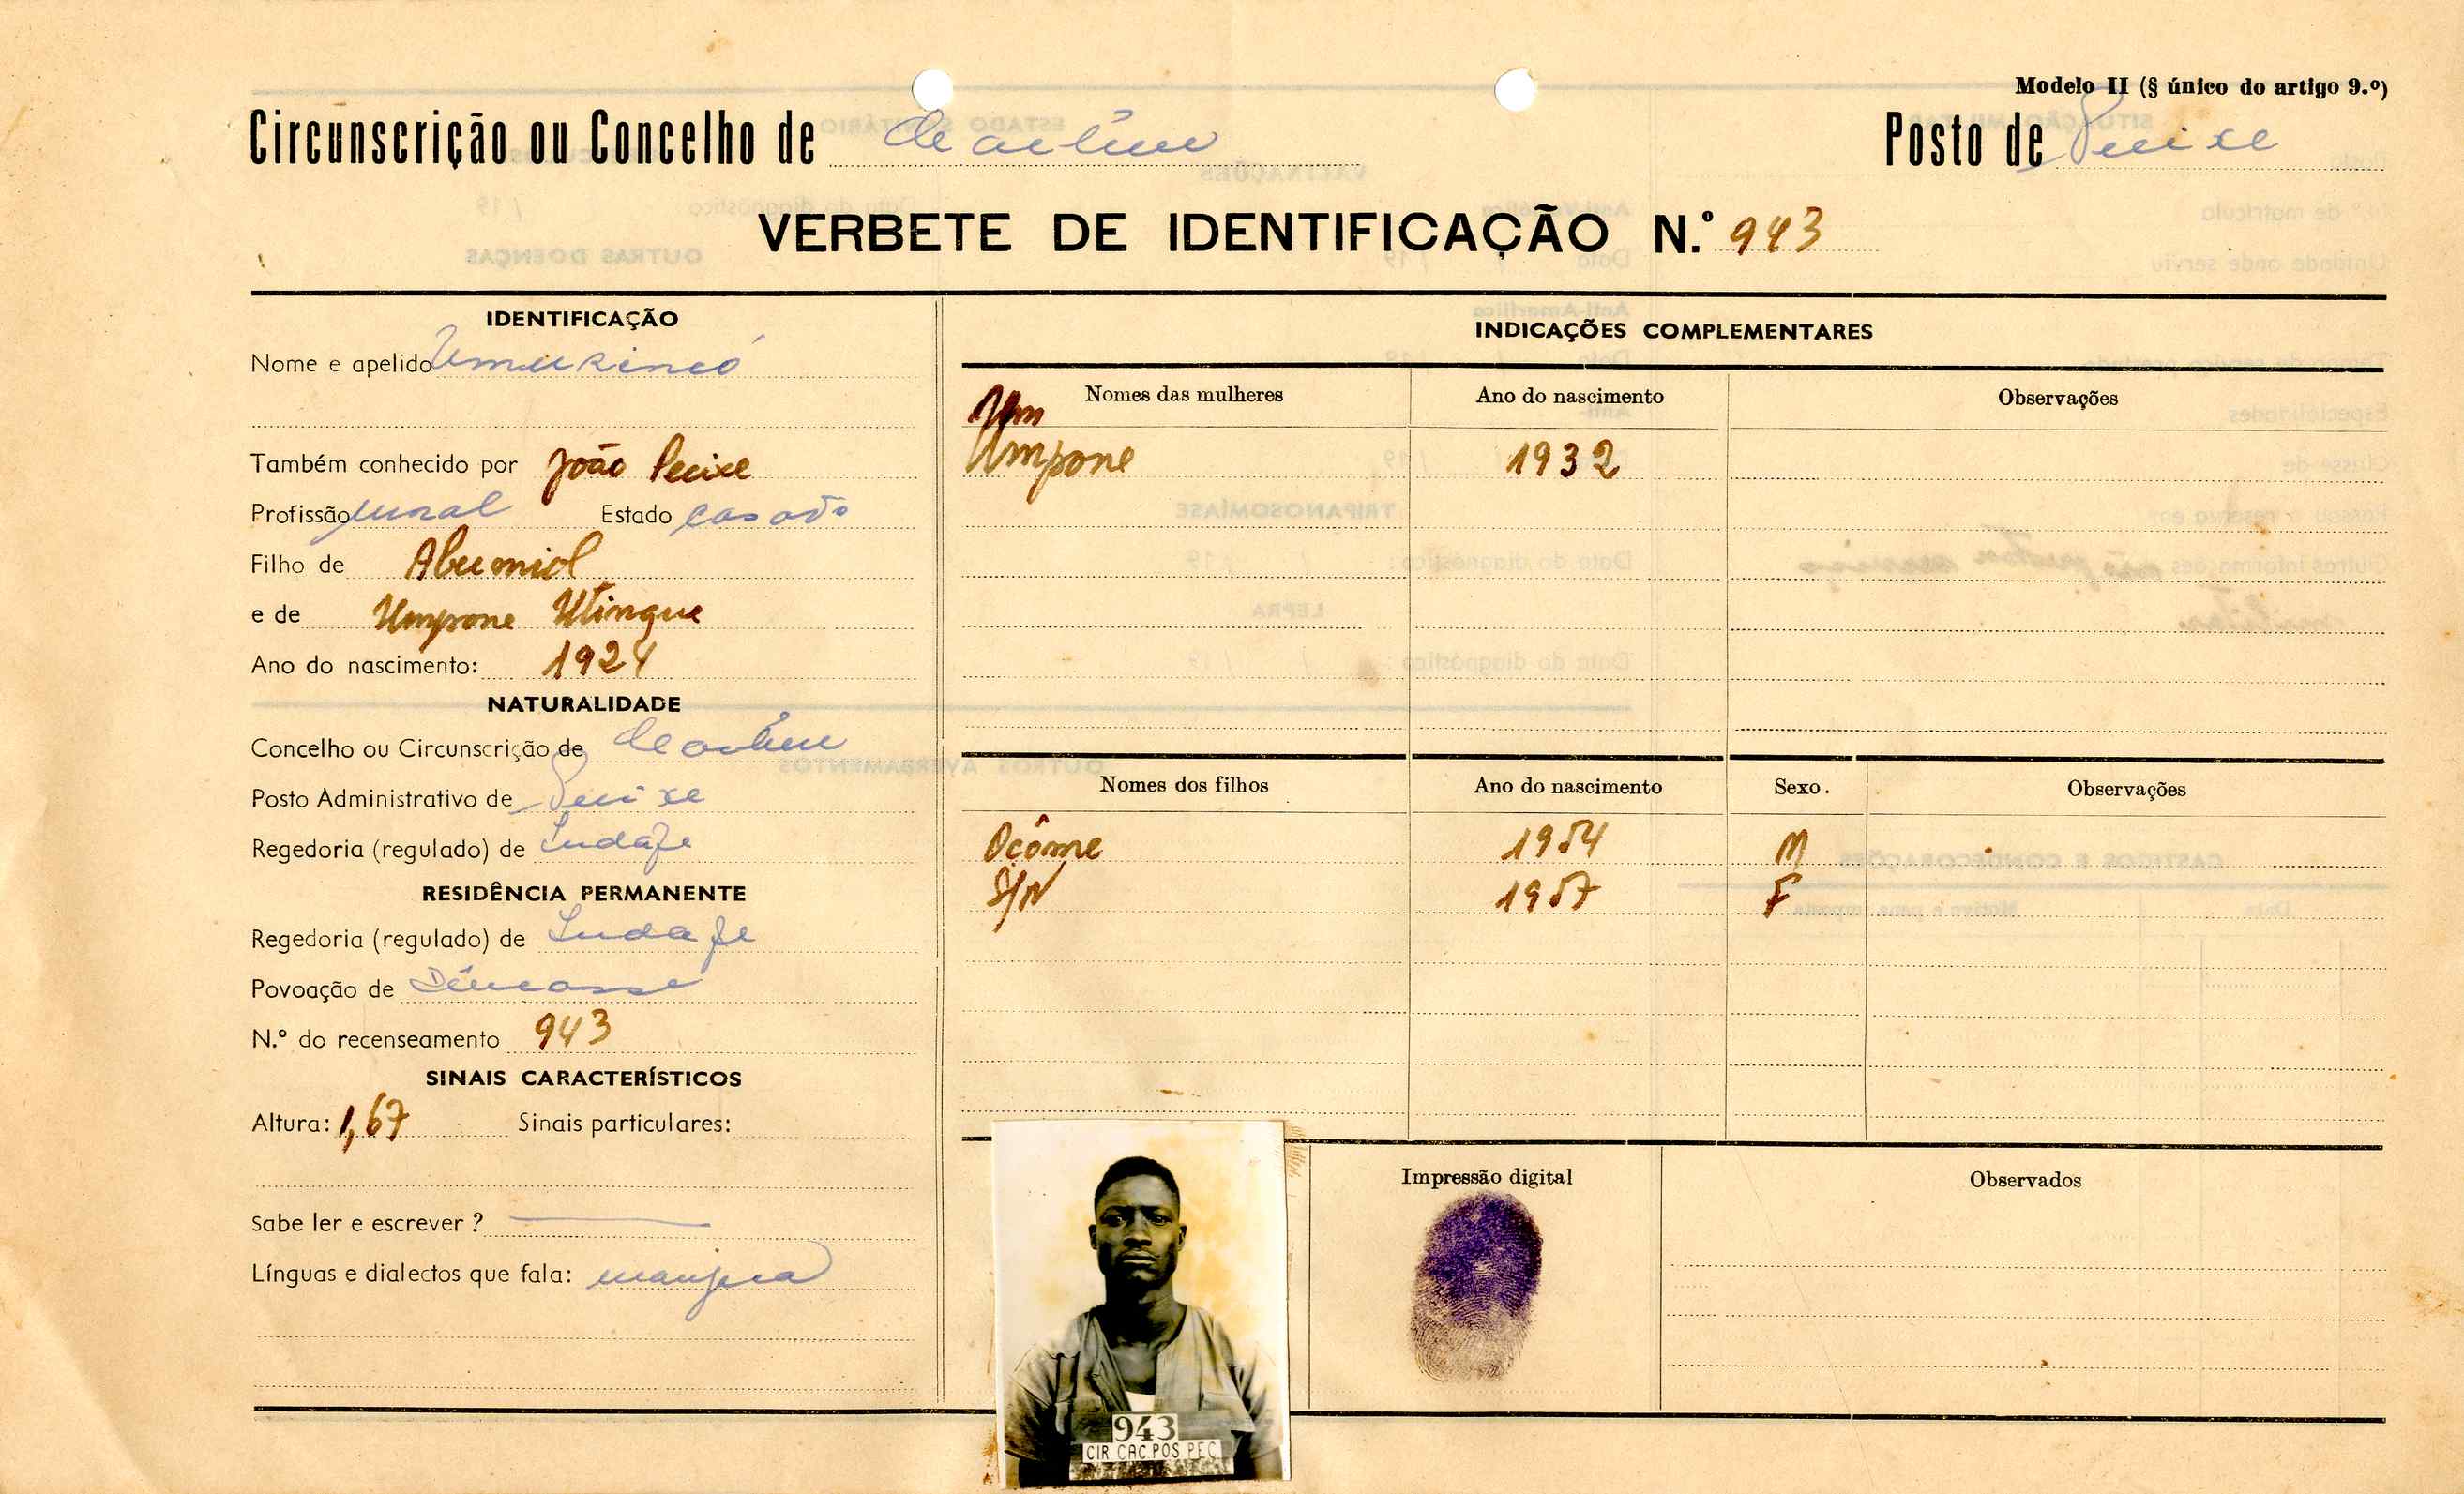 Modelo II (§ único do artigo 9.º)
Circunscrição ou Concelho de Cacheu Posto de Pecixe
VERBETE DE IDENTIFICAÇÃO N.º 943
IDENTIFICAÇÃO
Nome e apelido
Também conhecido por João Pecixe
Profissão rural Estado casado
Filho de
e de Umpone Utingue
Ano do nascimento: 1924
NATURALIDADE
Concelho ou Circunscrição de Cacheu
Posto Administrativo de Pecixe
Regedoria (regulado) de
RESIDÊNCIA PERMANENTE
Regedoria (regulado) de
Povoação de
N.º do recenseamento 943
SINAIS CARACTERÍSTICOS
Altura: 1,67 Sinais particulares:
Sabe ler e escrever ?
Línguas e dialectos que fala: manjaca
INDICAÇÕES COMPLEMENTARES
Nomes das mulheres Ano do nascimento Observações
Um
Umpone 1932
Nomes dos filhos Ano do nascimento Sexo. Observações
Ocôme 1954 M
S/N 1957 F
Impressão digital Observados
943
CIR CAC.POS PEC